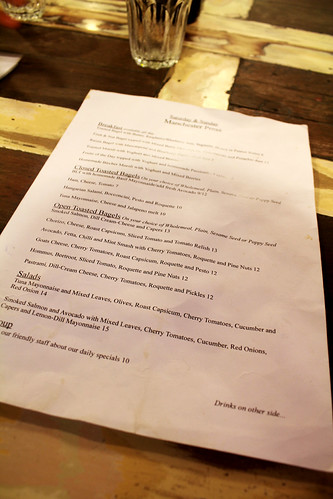 Saturday & Sunday
Manchester Press
Breakfast
Closed Toasted Bagels On your choice of Wholemeal, Plain, Sesame Seed or Poppy Seed
BLT with Homemade Basil Mayonnaise/add fresh Avocado 9/11
Ham, Cheese, Tomato 7
Hungarian Salami, Bocconcini, Pesto and Roquette 10
Tuna Mayonnaise, Cheese and Jalapeno melt 10
Open Toasted Bagels On your choice of Wholemeal, Plain, Sesame Seed or Poppy Seed
Smoked Salmon, Dill Cream-Cheese and Capers 11
Chorizo, Cheese, Roast Capsicum, Sliced Tomato and Tomato Relish 13
Avocado, Fetta, Chilli and Mint Smash with Cherry Tomatoes, Roquette and Pine Nuts 12
Goats Cheese, Cherry Tomatoes, Roast Capsicum, Roquette and Pesto 12
Hummus, Beetroot, Sliced Tomato, Roquette and Pine Nuts 12
Pastrami, Dill-Cream Cheese, Cherry Tomatoes, Roquette and Pickles 12
Salads
Tuna Mayonnaise and Mixed Leaves, Olives, Roast Capsicum, Cherry Tomatoes, Cucumber and
Red Onion 14
Smoked Salmon and Avocado with Mixed Leaves, Cherry Tomatoes, Cucumber, Red Onions,
Capers and Lemon-Dill Mayonnaise 15
oup
our friendly staff about our daily specials 10
Drinks on other side...